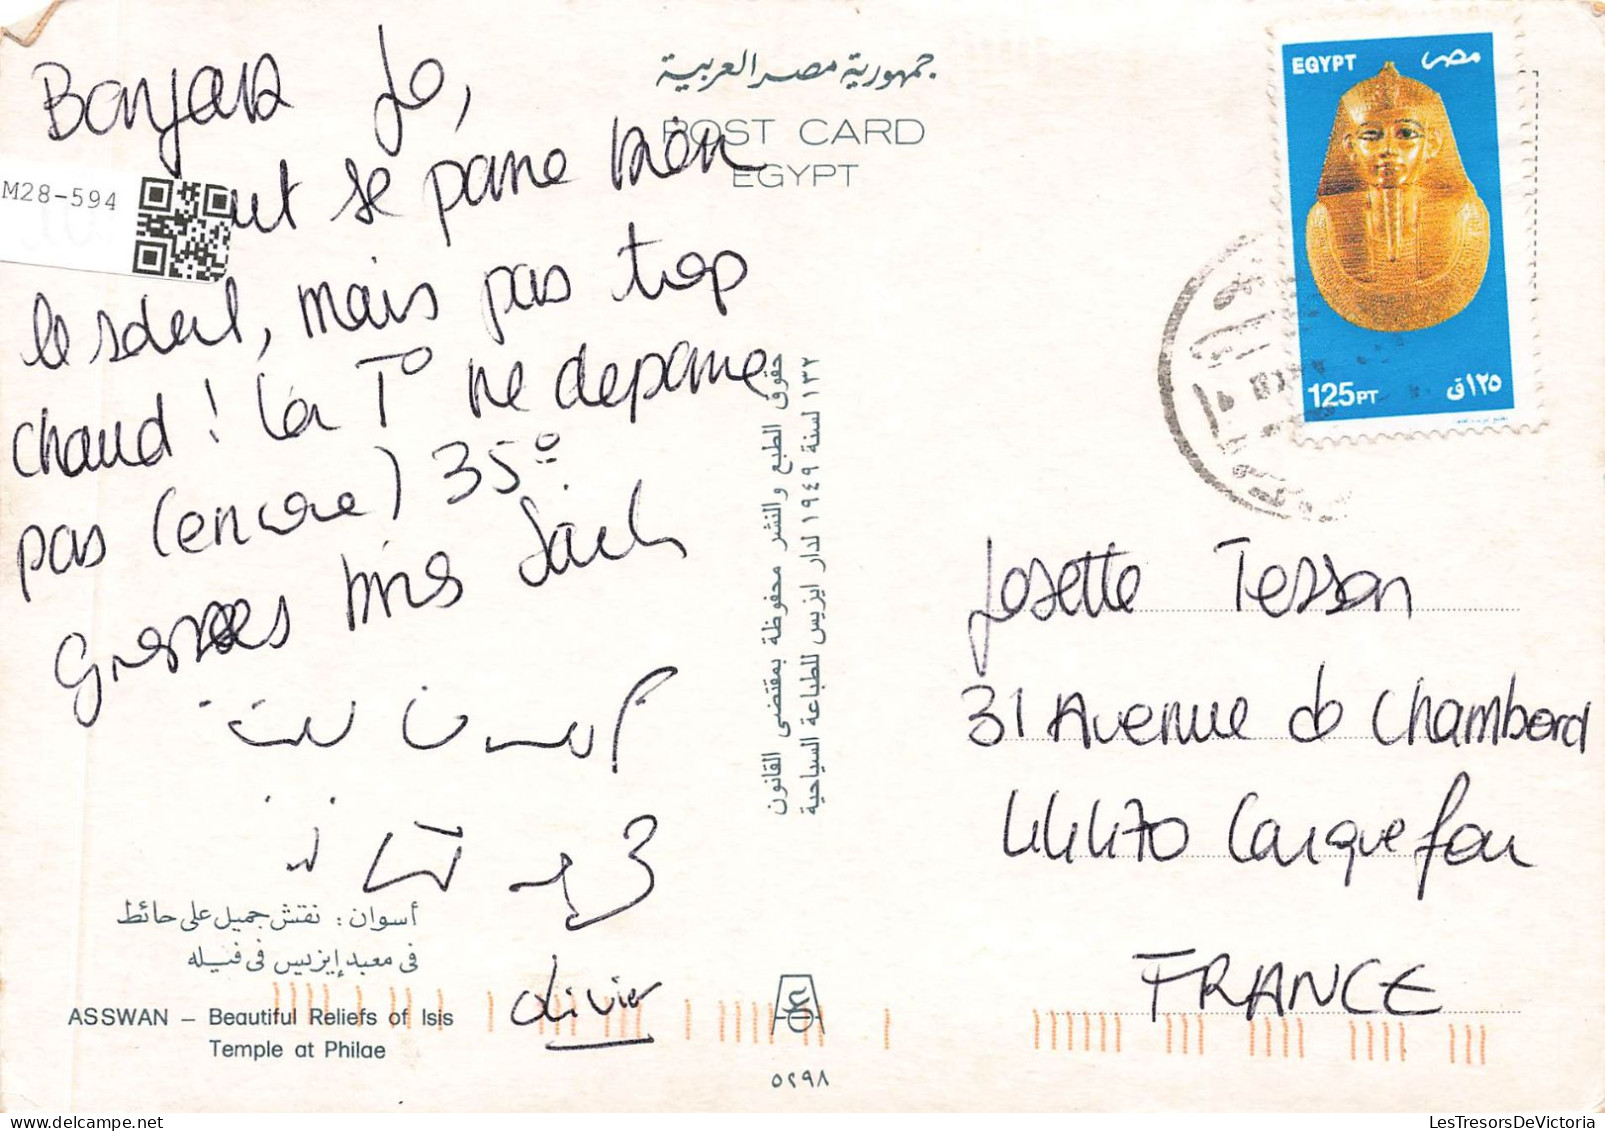 Bonjour Jo,
se passe bien
le soleil, mais pas trop
chaud ! la T° ne depasse
pas (encore) 35°
Grosses bises
Olivier
M28-594
جمهورية مصر العربية
POST CARD
EGYPT
EGYPT مصر
125PT ١٢٥ق
حقوق الطبع والنشر محفوظة بمقتضى القانون
١٣٢ لسنة ١٩٤٩ لدار ايزيس للطباعة السياحية
Josette Tesson
31 Avenue de Chambord
44470 Carquefou
FRANCE
أسوان : نقش جميل على حائط
فى معبد إيزيس فى فيله
ASSWAN – Beautiful Reliefs of Isis
Temple at Philae
٥٢٩٨
LesTresorsDeVictoria.com